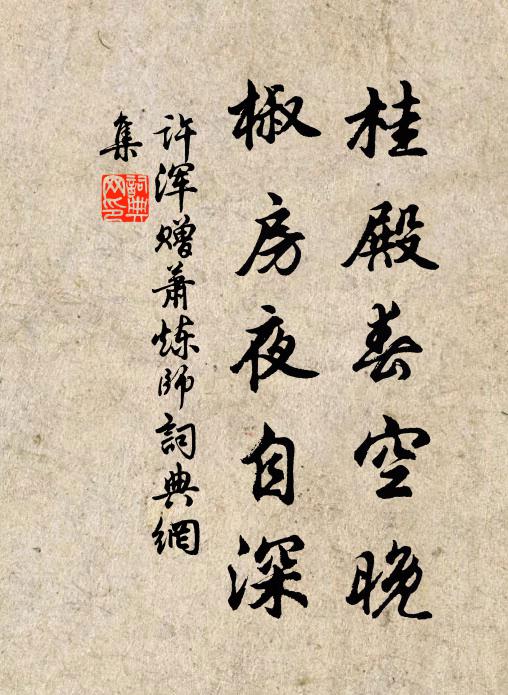 桂殿春空晚
椒房夜自深
许浑赠萧炼师詞典網
集
詞典网印